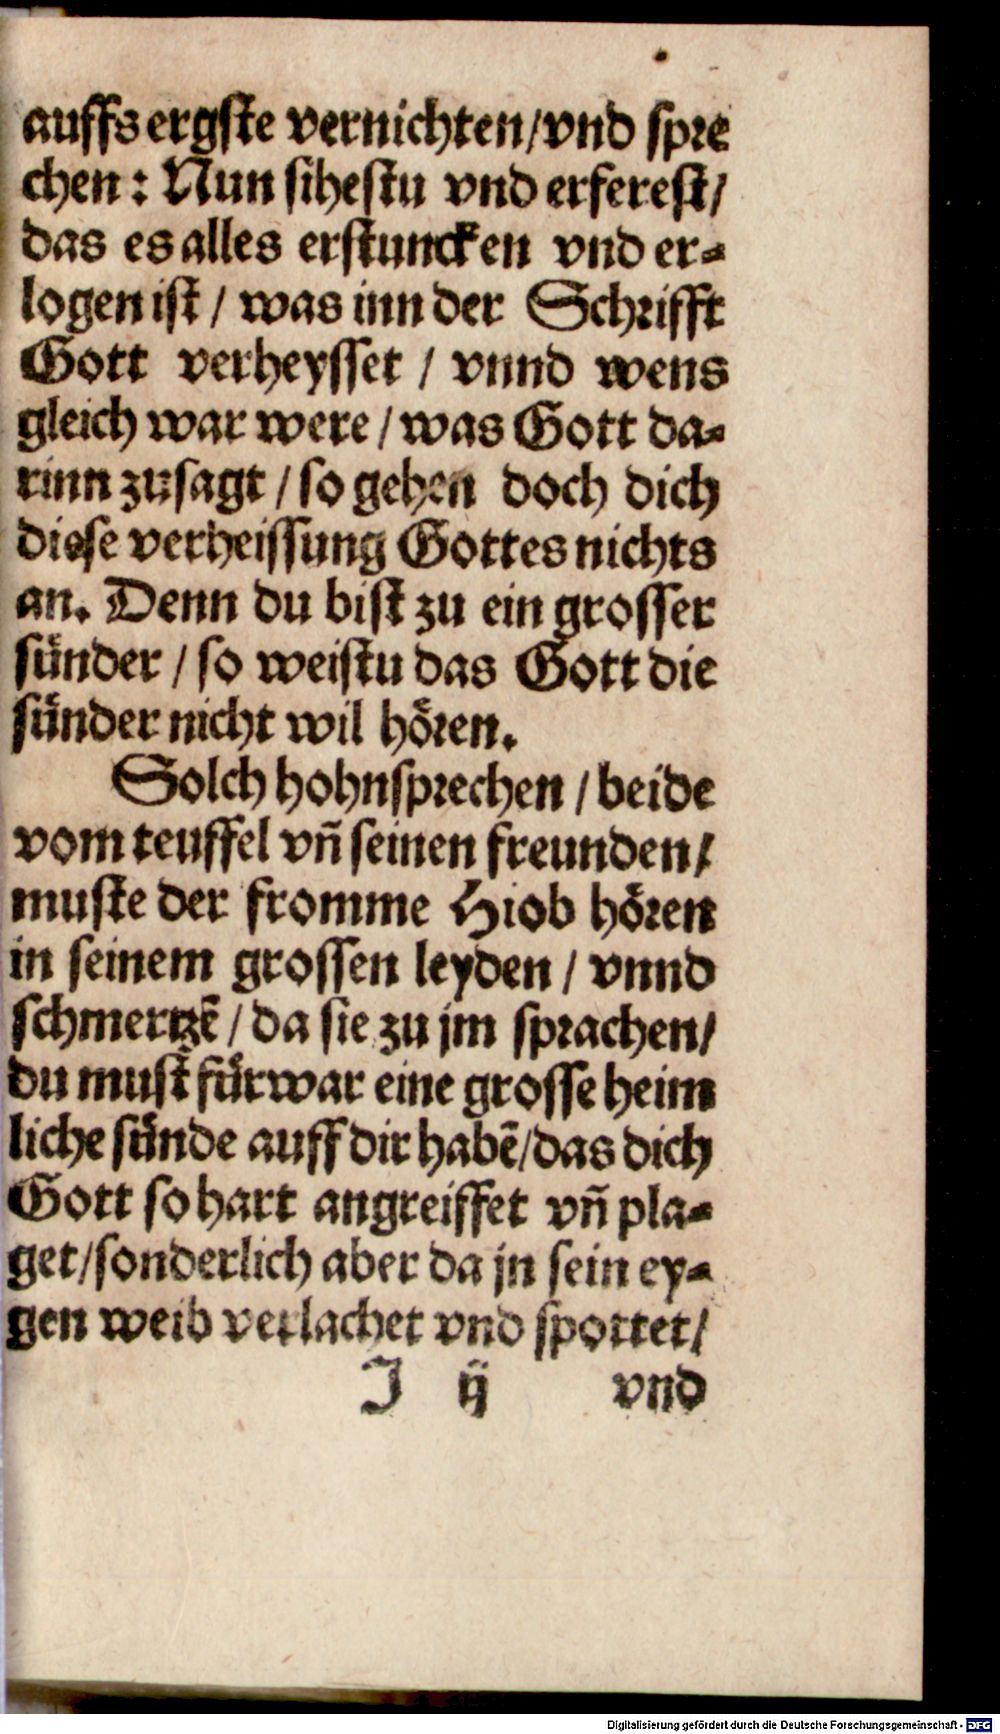 auffs ergste vernichten/vnd spre
chen: Nun sihestu vnd erferest/
das es alles erstuncken vnd er-
logen ist / was inn der Schrifft
Gott verheysset / vnnd wens
gleich war were / was Gott da-
rinn zusagt / so gehen doch dich
diese verheissung Gottes nichts
an. Denn du bist zu ein grosser
sünder / so weistu das Gott die
sünder nicht wil hören.
Solch hohnsprechen / beide
vom teuffel vñ seinen freunden/
muste der fromme Hiob hören
in seinem grossen leyden / vnnd
schmertzẽ / da sie zu jm sprachen/
du must fürwar eine grosse heim
liche sünde auff dir habẽ/das dich
Gott so hart angreiffet vñ pla-
get/sonderlich aber da jn sein ey-
gen weib verlachet vnd spottet/
J ij vnd
Digitalisierung gefördert durch die Deutsche Forschungsgemeinschaft - DFG